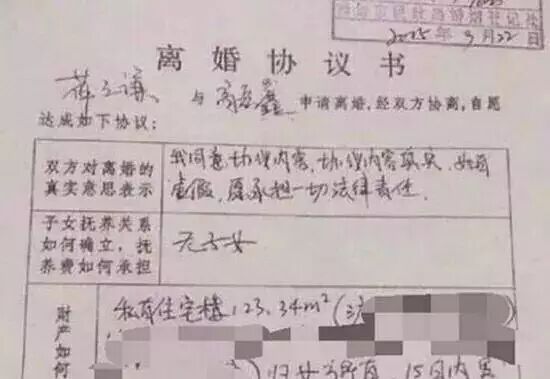 2015年9月22日
离婚协议书
薛之谦 与 高磊鑫 申请离婚,经双方协商,自愿
达成如下协议:
双方对离婚的
真实意思表示
我同意协议内容,协议内容真实,如有
虚假,愿承担一切法律责任.
子女抚养关系
如何确立,抚
养费如何承担
无子女
财产如何
私有住宅楼 123.34m²(沪
归女方所有 15日内